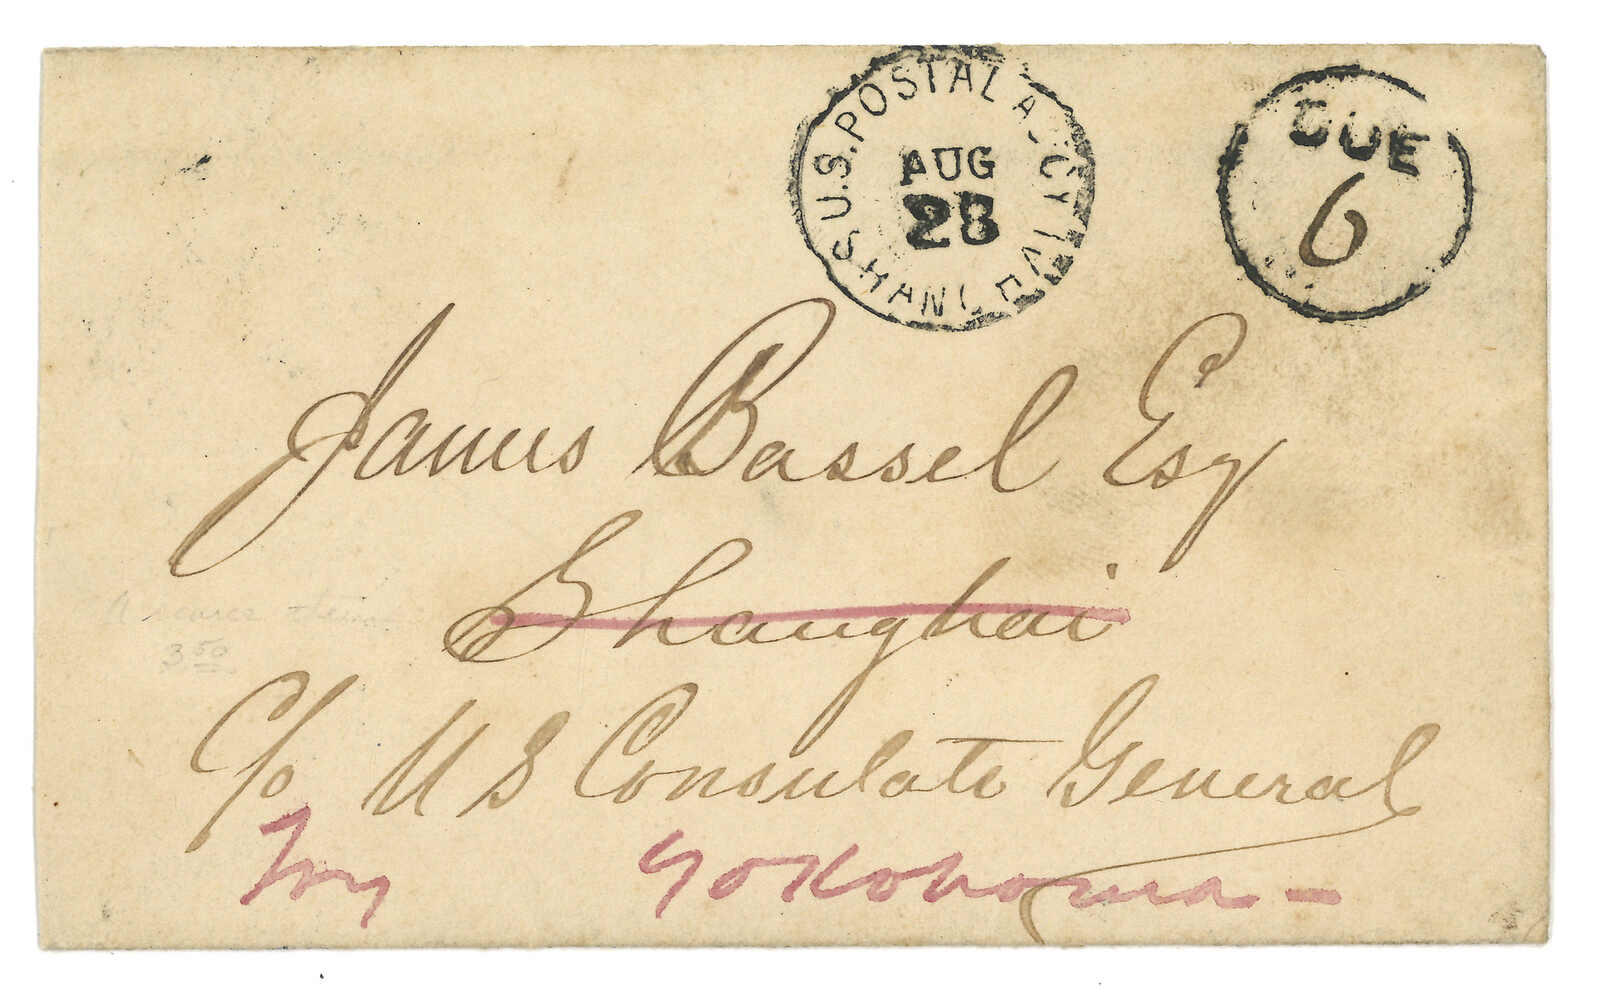 U.S. POSTAL AGCY
SHANGHAI
AUG
28
DUE
6
James Bassel Esq
Shanghai
C/o U S Consulate General
Try Yokohama -
3 50